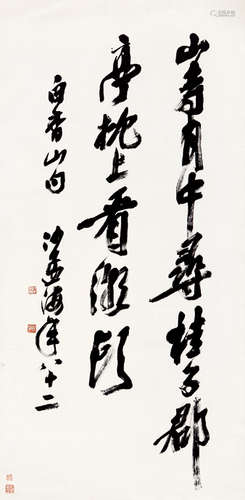 山寺月中寻桂子郡
亭枕上看潮头
白香山句
沙孟海年八十二